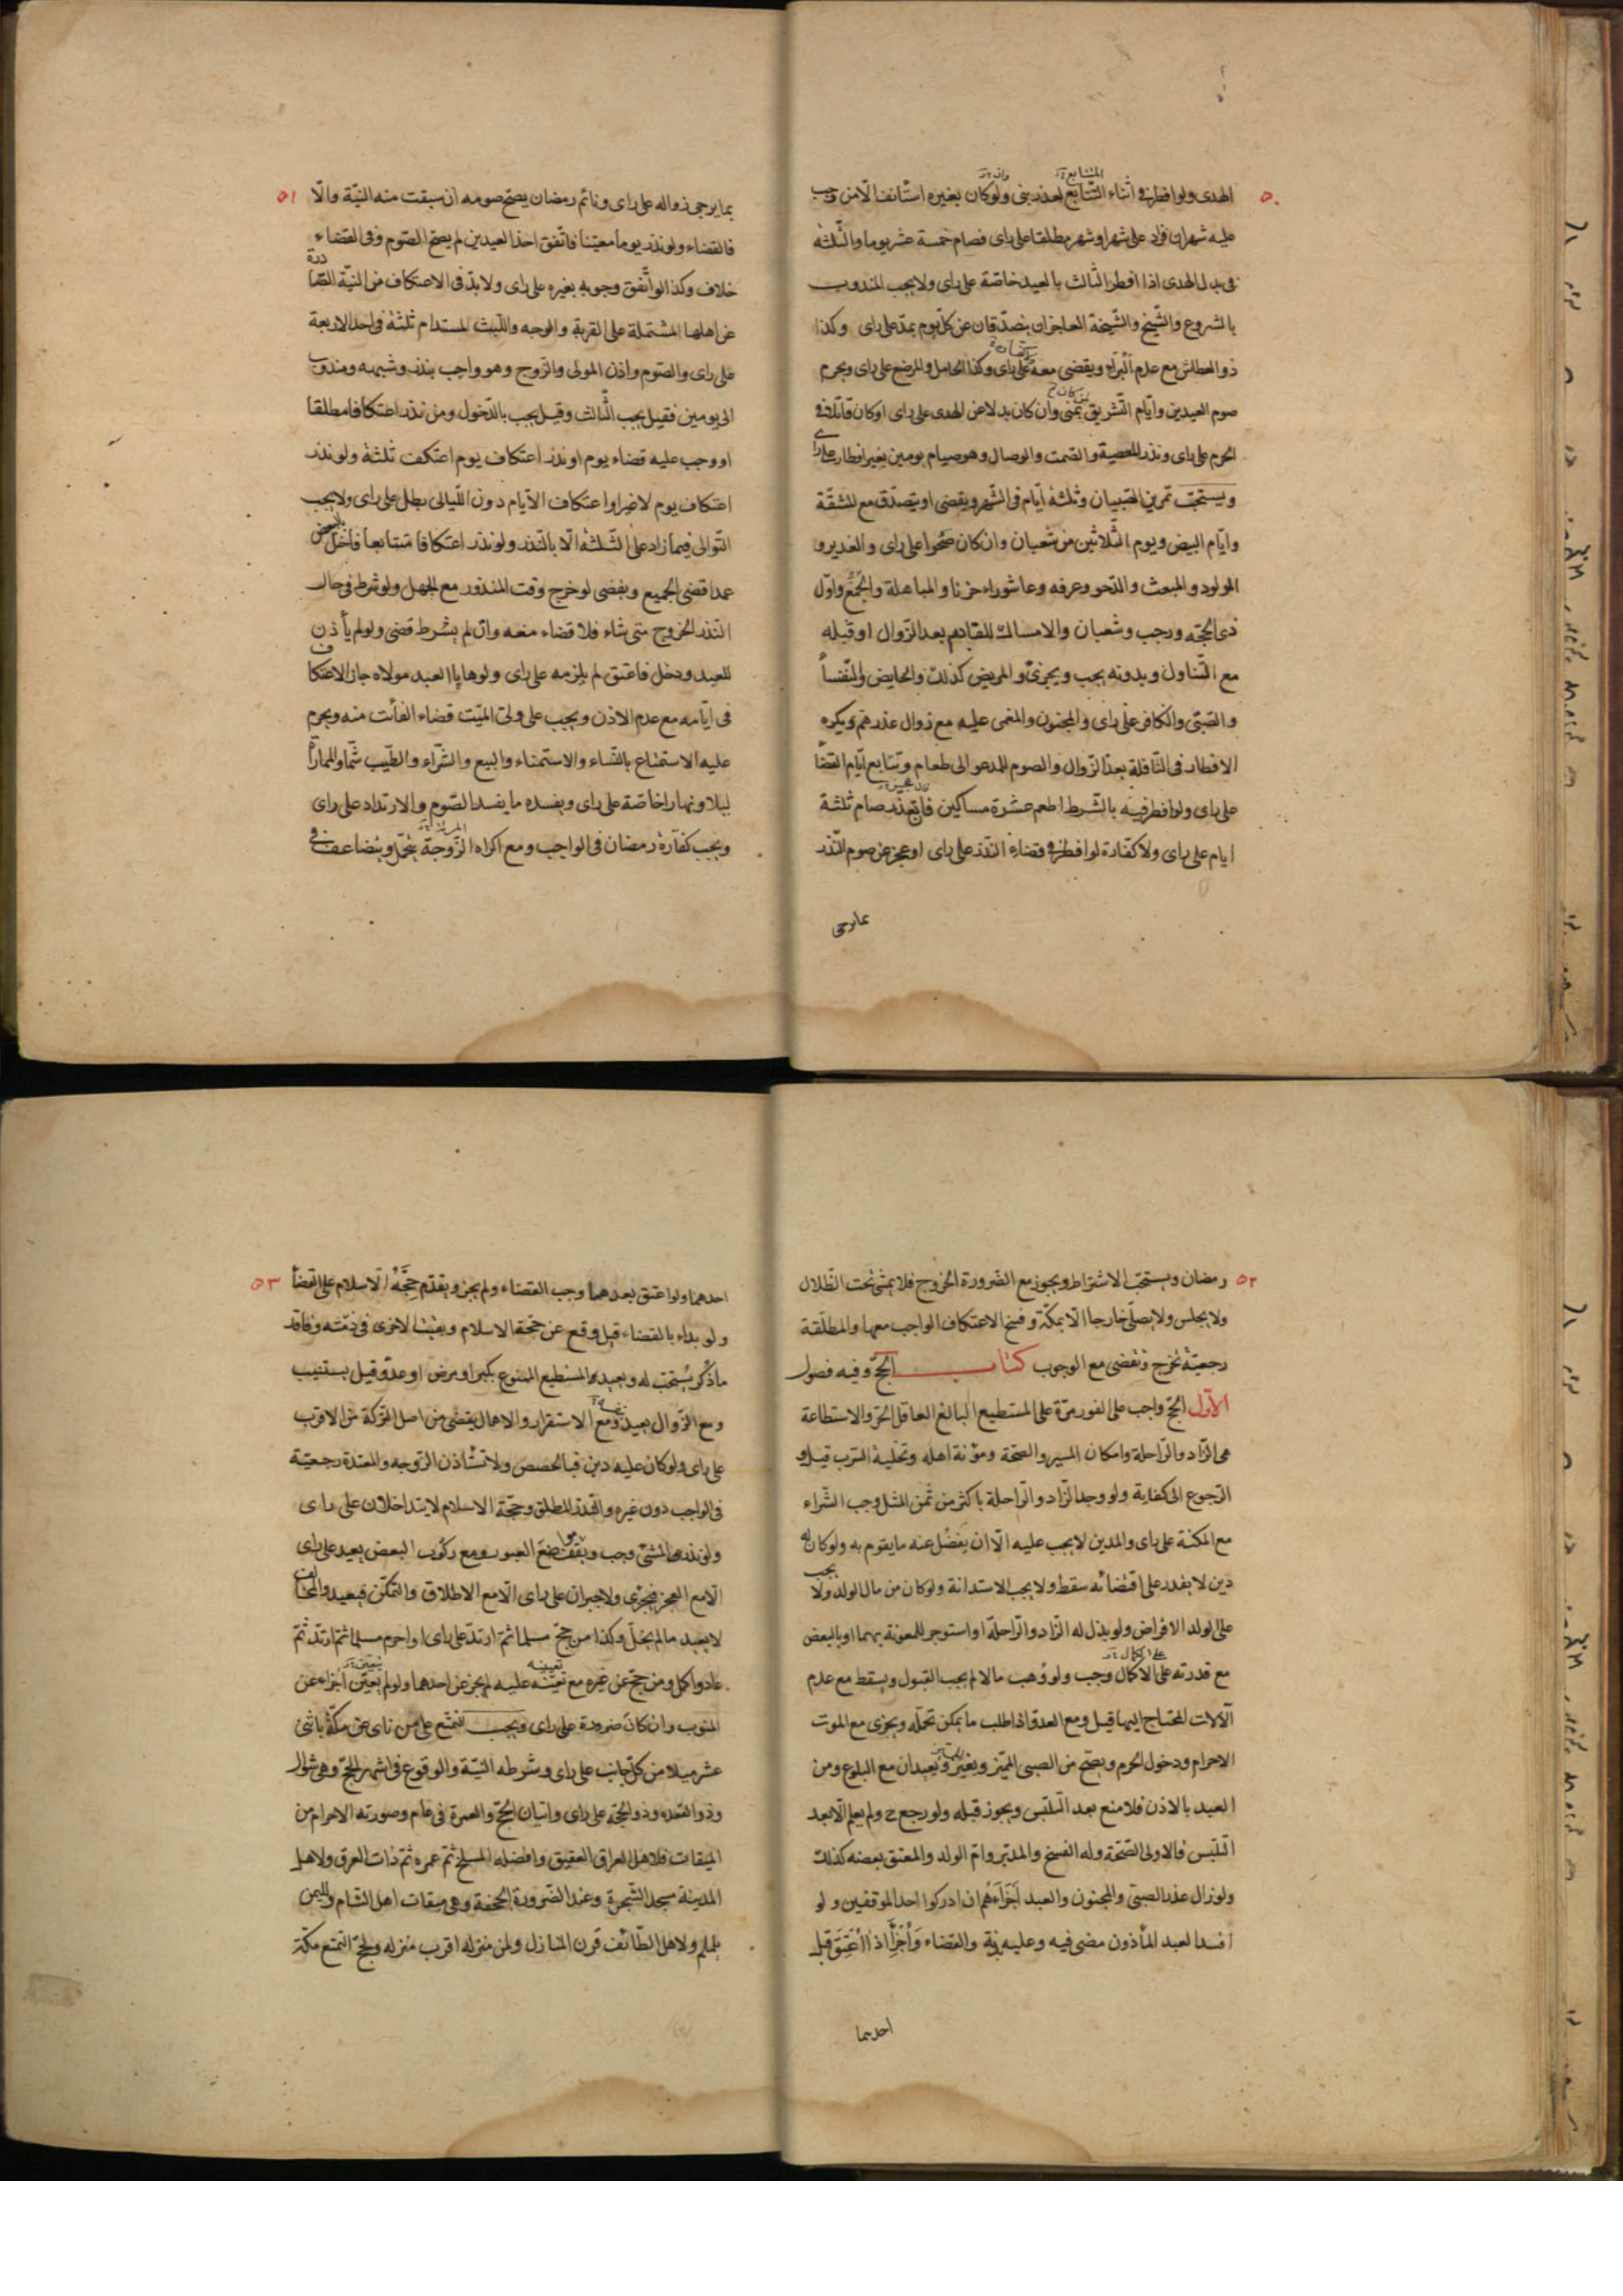 ٥٠
الهدى ولو افطر فى اثناء التتابع لعذر بنى ولو كان بغيره استأنف الا من وجب
عليه شهران فزاد على شهر او شهر مطلقا على راى فصام خمسة عشر يوما والثلثه
فى بدل الهدى اذا افطر الثالث بالعيد خاصّة على راى ولا يجب المندوب
بالشروع والشيخ والشيخة العاجزان يتصدّقان عن كلّ يوم بمدّ على راى وكذا
ذو العطاش مع عدم البرء ويقضى معه على راى وكذا الحامل والمرضع على راى ويحرم
صوم العيدين وايّام التّشريق بمنى وان كان بدلا عن الهدى على راى او كان قاتلا فى
الحرم على راى ونذر المعصية والصّمت والوصال وهو صيام يومين بغير افطار على راى
ويستحبّ تمرين الصّبيان وثلثة ايّام فى الشّهر ويقضى او يتصدّق مع المشقّة
وايّام البيض ويوم الثّلاثين من شعبان وان كان صحوا على راى والغدير و
المولود والمبعث والدّحو وعرفه وعاشوراء حزنا والمباهلة والجمع واوّل
ذى الحجّه ورجب وشعبان والامساك للقادم بعد الزّوال او قبله
مع التّناول وبدونه يجب ويجزئ والمريض كذلك والحايض والنّفسأ
والصّبىّ والكافر على راى والمجنون والمغمى عليه مع زوال عذرهم ويكره
الافطار فى النّافلة بعد الزّوال والصوم للمدعو الى طعام وتتابع ايّام القضأ
على راى ولو افطر فيه بالشّرط اطعم عشرة مساكين فان تعذّر صام ثلثة
ايام على راى ولا كفّارة لو افطر فى قضاء النّذر على راى او عجز عن صوم النّذر
بما يرجى
٥١
بما يرجى زواله على راى ونائم رمضان يصحّ صومه ان سبقت منه النيّة والّا
فالقضاء ولو نذر يوما معيّنا فاتّفق احد العيدين لم يصحّ الصّوم وفى القضاء
خلاف وكذا لو اتّفق وجوبه بغيره على راى ولا بدّ فى الاعتكاف من النيّة الصّادرة
عن اهلها المشتملة على القربة والوجه واللّبث المستدام ثلثة فى احد الاربعة
على راى والصّوم واذن المولى والزّوج وهو واجب بنذر وشبهه ومندوب
الى يومين فقيل يجب الثّالث وقيل يجب بالدّخول ومن نذر اعتكافا مطلقا
او وجب عليه قضاء يوم او نذر اعتكاف يوم اعتكف ثلثة ولو نذر
اعتكاف يوم لا غير او اعتكاف الايّام دون اللّيالى بطل على راى ولا يجب
التّوالى فيما زاد على الثّلثة الّا بالنّذر ولو نذر اعتكافا متتابعا فاخلّ بالبعض
عمدا قضى الجميع ويقضى لو خرج وقت المنذور مع الجهل ولو شرط فى حال
النّذر الخروج متى شاء فلا قضاء معه وان لم يشرط قضى ولو لم يأذن
للعبد ودخل فاعتق لم يلزمه على راى ولو هايا العبد مولاه جاز الاعتكاف
فى ايّامه مع عدم الاذن ويجب على ولىّ الميّت قضاء الفائت منه ويحرم
عليه الاستمتاع بالنّساء والاستمناء والبيع والشّراء والطّيب شمّا والمماراة
ليلا ونهارا خاصّة على راى ويفسده ما يفسد الصّوم والارتداد على راى
ويجب كفّارة رمضان فى الواجب ومع اكراه الزّوجة يتحمّل ويتضاعف فى
٥٢
رمضان ويستحبّ الاشتراط ويجوز مع الضّرورة الخروج فلا يمشى تحت الظّلال
ولا يجلس ولا يصلّى خارجا الّا بمكّة وفسخ الاعتكاف الواجب معها والمطلّقة
رجعيّة تخرج وتقضى مع الوجوب كتاب الحجّ وفيه فصول
الاوّل الحجّ واجب على الفور مرّة على المستطيع البالغ العاقل الحرّ والاستطاعة
هى الزّاد والرّاحلة وامكان المسير والصحّة ومؤنة اهله وتخلية السّرب قيل و
الرّجوع الى كفاية ولو وجد الزّاد والرّاحلة باكثر من ثمن المثل وجب الشّراء
مع المكنة على راى والمدين لا يجب عليه الّا ان يفضل عنه ما يقوم به ولو كان له
دين لا يقدر على اقتضائه سقط ولا يجب الاستدانة ولو كان من مال الولد ولا يجب
على الولد الاقراض ولو بذل له الزّاد والرّاحلة او استوجر للمعونة بهما او بالبعض
مع قدرته على الاكمال وجب ولو وُهب مالا لم يجب القبول ويسقط مع عدم
الآلات المحتاج اليها قيل ومع العدوّ اذا طلب ما يمكن تحمّله ويجزى مع الموت
الاحرام ودخول الحرم ويصحّ من الصبى المميّز وبغير ويعيدان مع البلوغ ومن
العبد بالاذن فلا منع بعد التلبّس ويجوز قبله ولو رجع ح ولم يعلم الّا بعد
التلبّس فالاولى الصّحّة وله الفسخ والمدبّر وامّ الولد والمعتق بعضه كذلك
ولو زال عذر الصبىّ والمجنون والعبد اجزأهم ان ادركوا احد الموقفين ولو
افسد العبد المأذون مضى فيه وعليه بدنة والقضاء واجزأ اذا اعتق قبل
احدهما
٥٣
احدهما ولو اعتق بعدهما وجب القضاء ولم يجز ويقدّم حجّة الاسلام على القضأ
ولو بداء بالقضاء قيل وقع عن حجّة الاسلام وبقيت الاخرى فى ذمّته وفاقد
ما ذكر يستحبّ له ويعيده المستطيع الممنوع بكبر او مرض او عدوّ قيل يستنيب
ومع الزّوال يعيد ومع الاستقرار والاهمال يقضى من اصل التّركة من الاقرب
على راى ولو كان عليه دين فبالحصص ولا تستأذن الزّوجه والمعتدّة رجعيّة
فى الواجب دون غيره والنّذر المطلق وحجّة الاسلام لا يتداخلان على راى
ولو نذر المشى وجب ويقف مواضع العبور ومع ركوب البعض يعيد على راى
الّا مع العجز فيجزى ولا جبران على راى الّا مع الاطلاق والتمكّن فيعيد والمخالف
لا يعيد ما لم يخلّ وكذا من حجّ مسلما ثمّ ارتدّ على راى او احرم مسلما ثمّ ارتدّ ثمّ
عاد واكمل ومن حجّ عن غيره مع تعيّنه عليه لم يجز عن احدهما ولو لم يتعيّن اجزاء عن
المنوب وان كان ضرورة على راى ويجب التمتّع على من ناى عن مكّة باثنى
عشر ميلا من كلّ جانب على راى وشرطه النيّة والوقوع فى اشهر الحجّ وهى شوال
وذو القعده وذو الحجّة على راى واتيان الحجّ والعمرة فى عام وصورته الاحرام من
الميقات فلاهل العراق العقيق وافضله المسلخ ثمّ غمره ثمّ ذات العرق ولاهل
المدينة مسجد الشّجرة وعند الضّرورة الجحفة وهى ميقات اهل الشام ولليمن
يلملم ولاهل الطّائف قرن المنازل ولمن منزله اقرب منزله ولحجّ التمتع مكّة